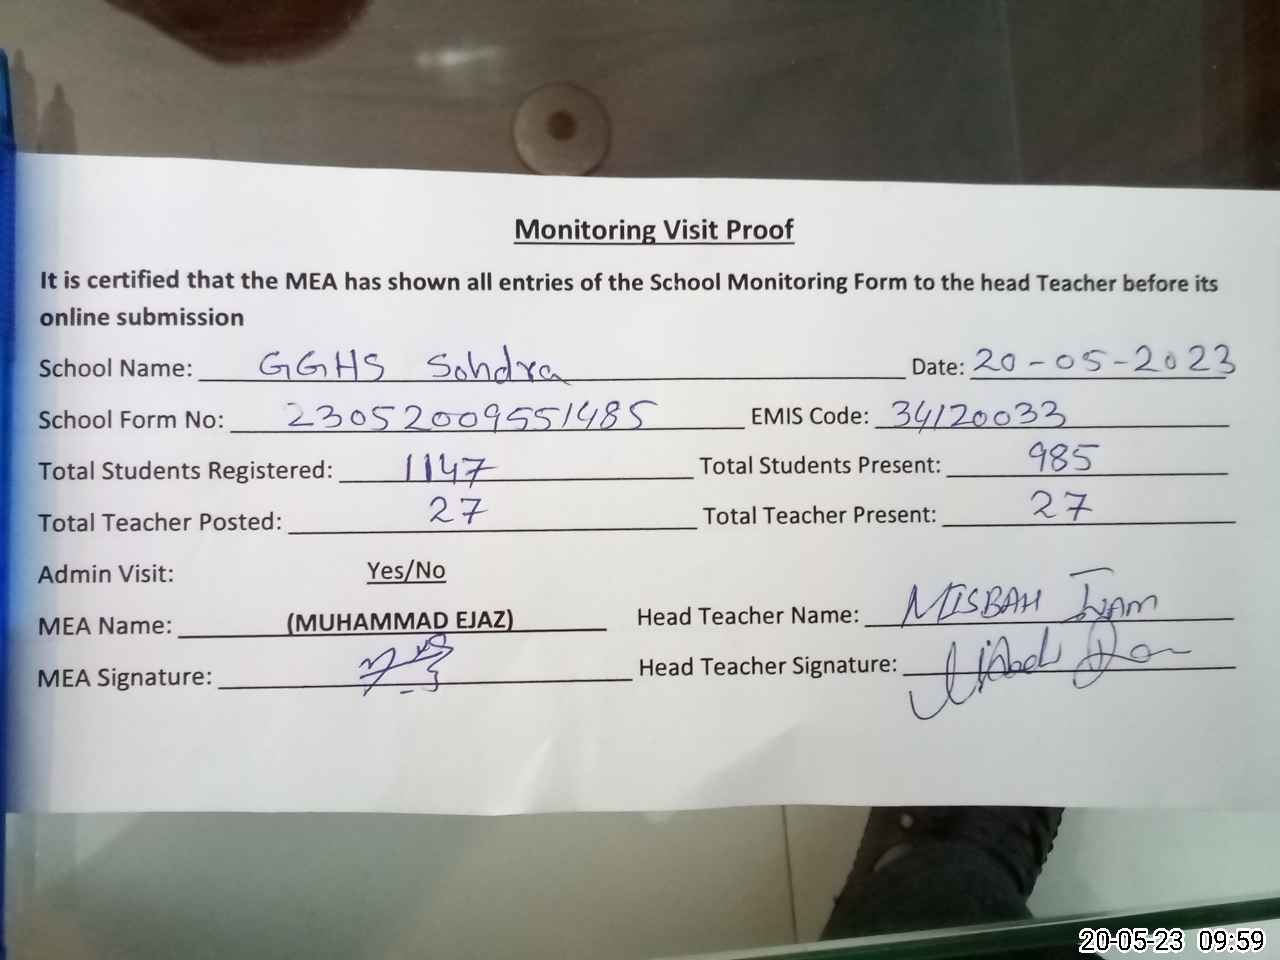 Monitoring Visit Proof
It is certified that the MEA has shown all entries of the School Monitoring Form to the head Teacher before its
online submission
School Name: GGHS Sohdra Date: 20-05-2023
School Form No: 23052009551485 EMIS Code: 34120033
Total Students Registered: 1147 Total Students Present: 985
Total Teacher Posted: 27 Total Teacher Present: 27
Admin Visit: Yes/No
MEA Name: (MUHAMMAD EJAZ) Head Teacher Name: MISBAH
MEA Signature: Head Teacher Signature:
20-05-23 09:59